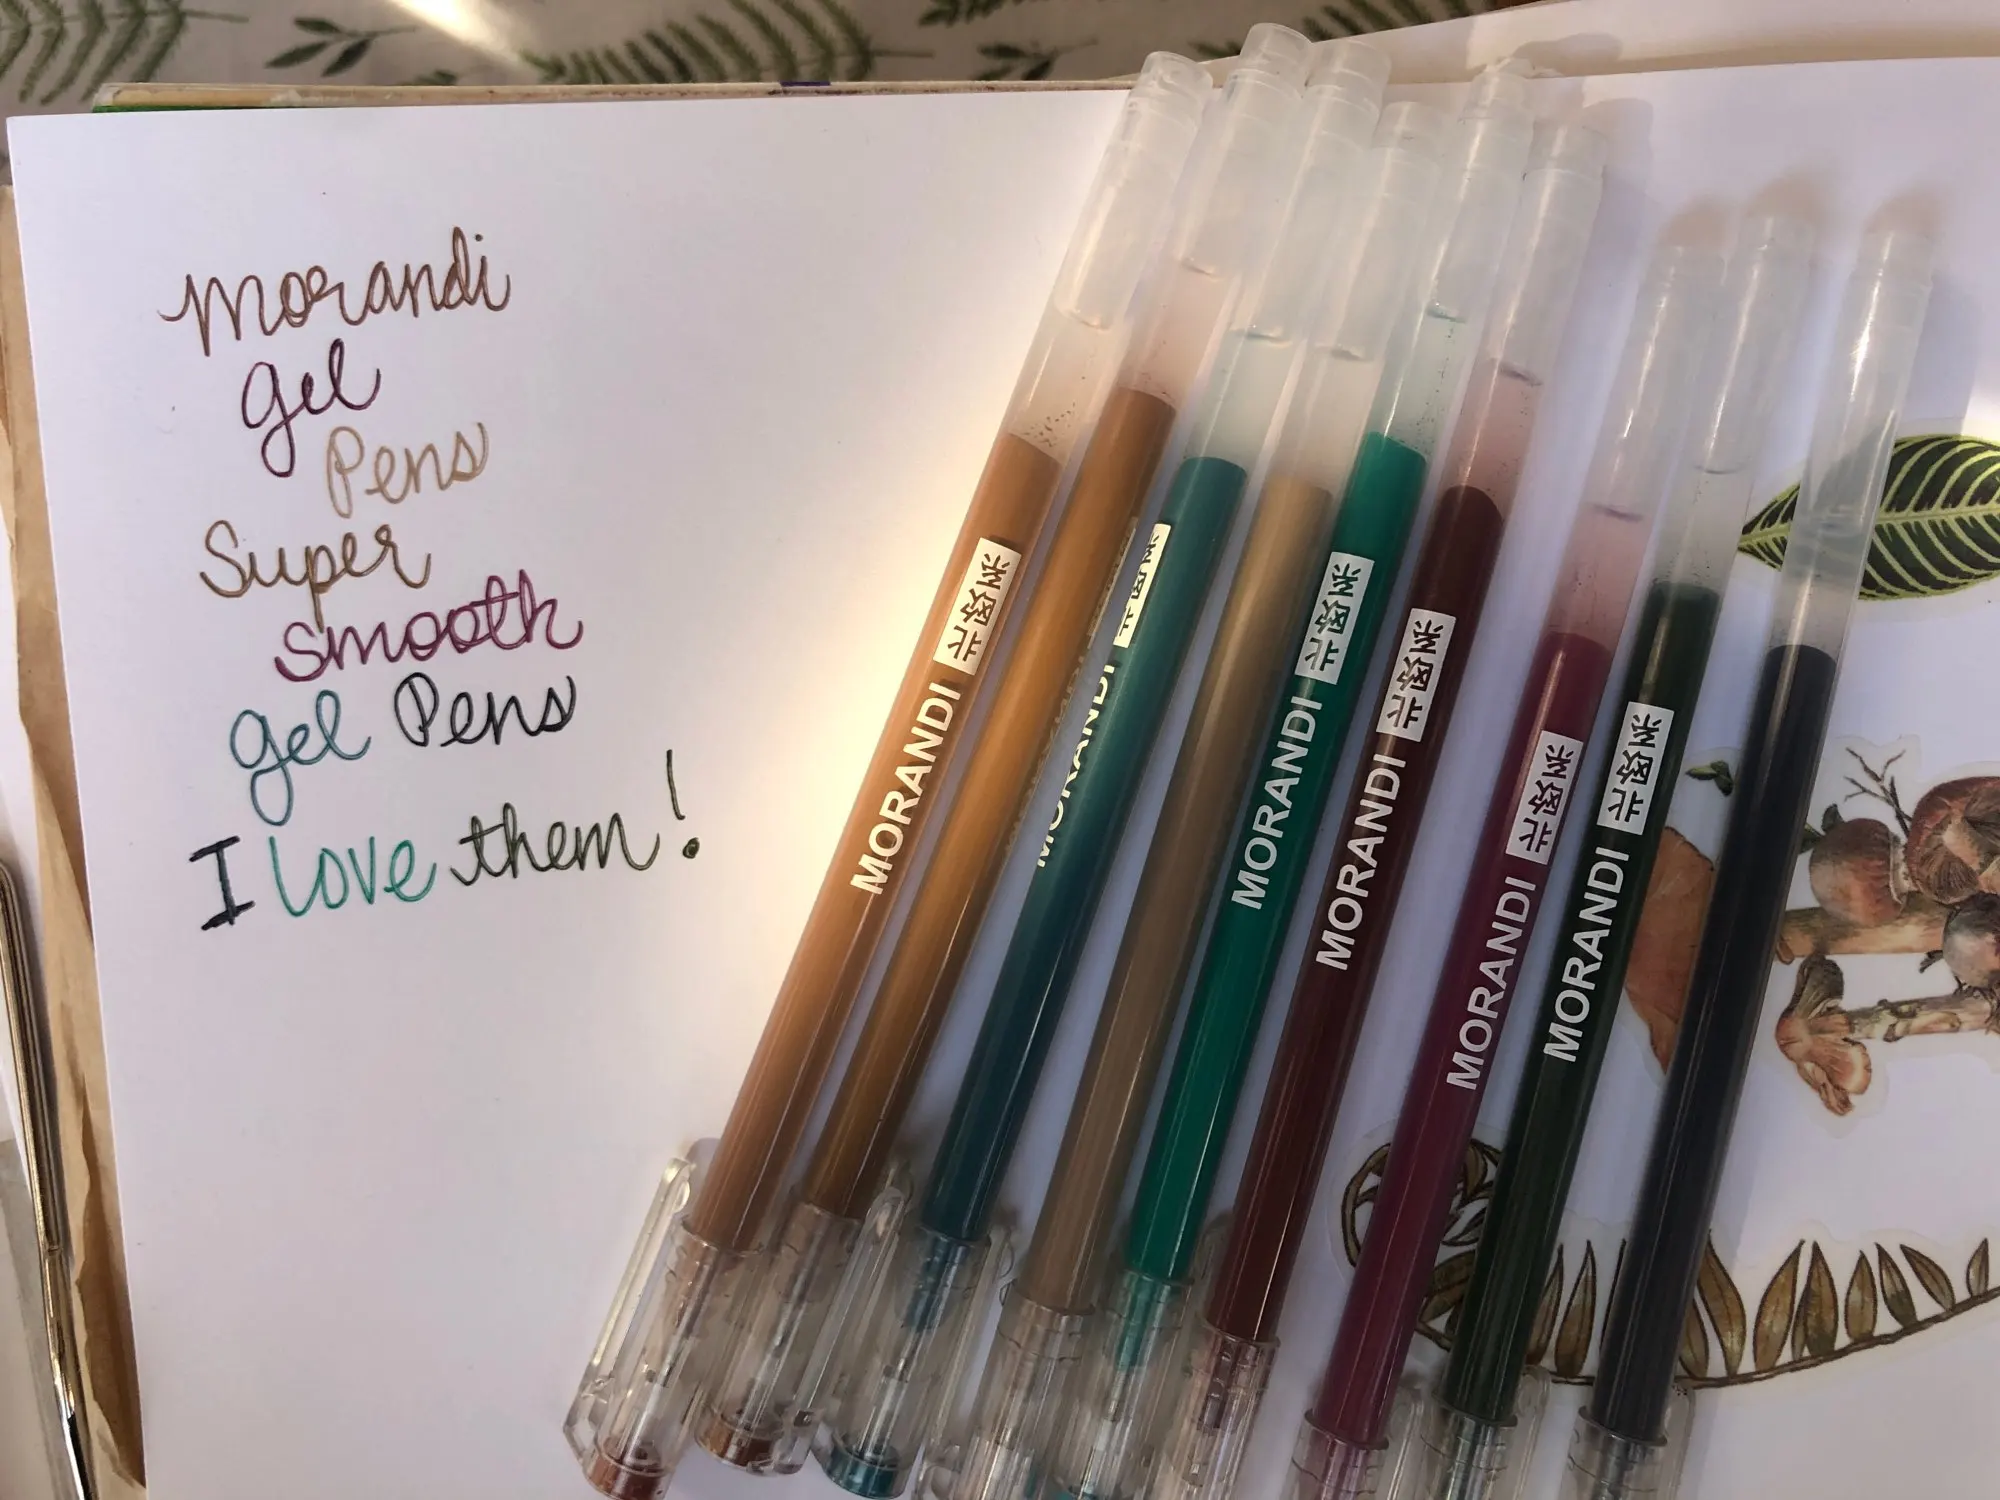 Morandi
gel
Pens
Super
smooth
gel Pens
I love them!
MORANDI 北欧系
MORANDI 北欧系
MORANDI 北欧系
MORANDI 北欧系
MORANDI 北欧系
MORANDI 北欧系